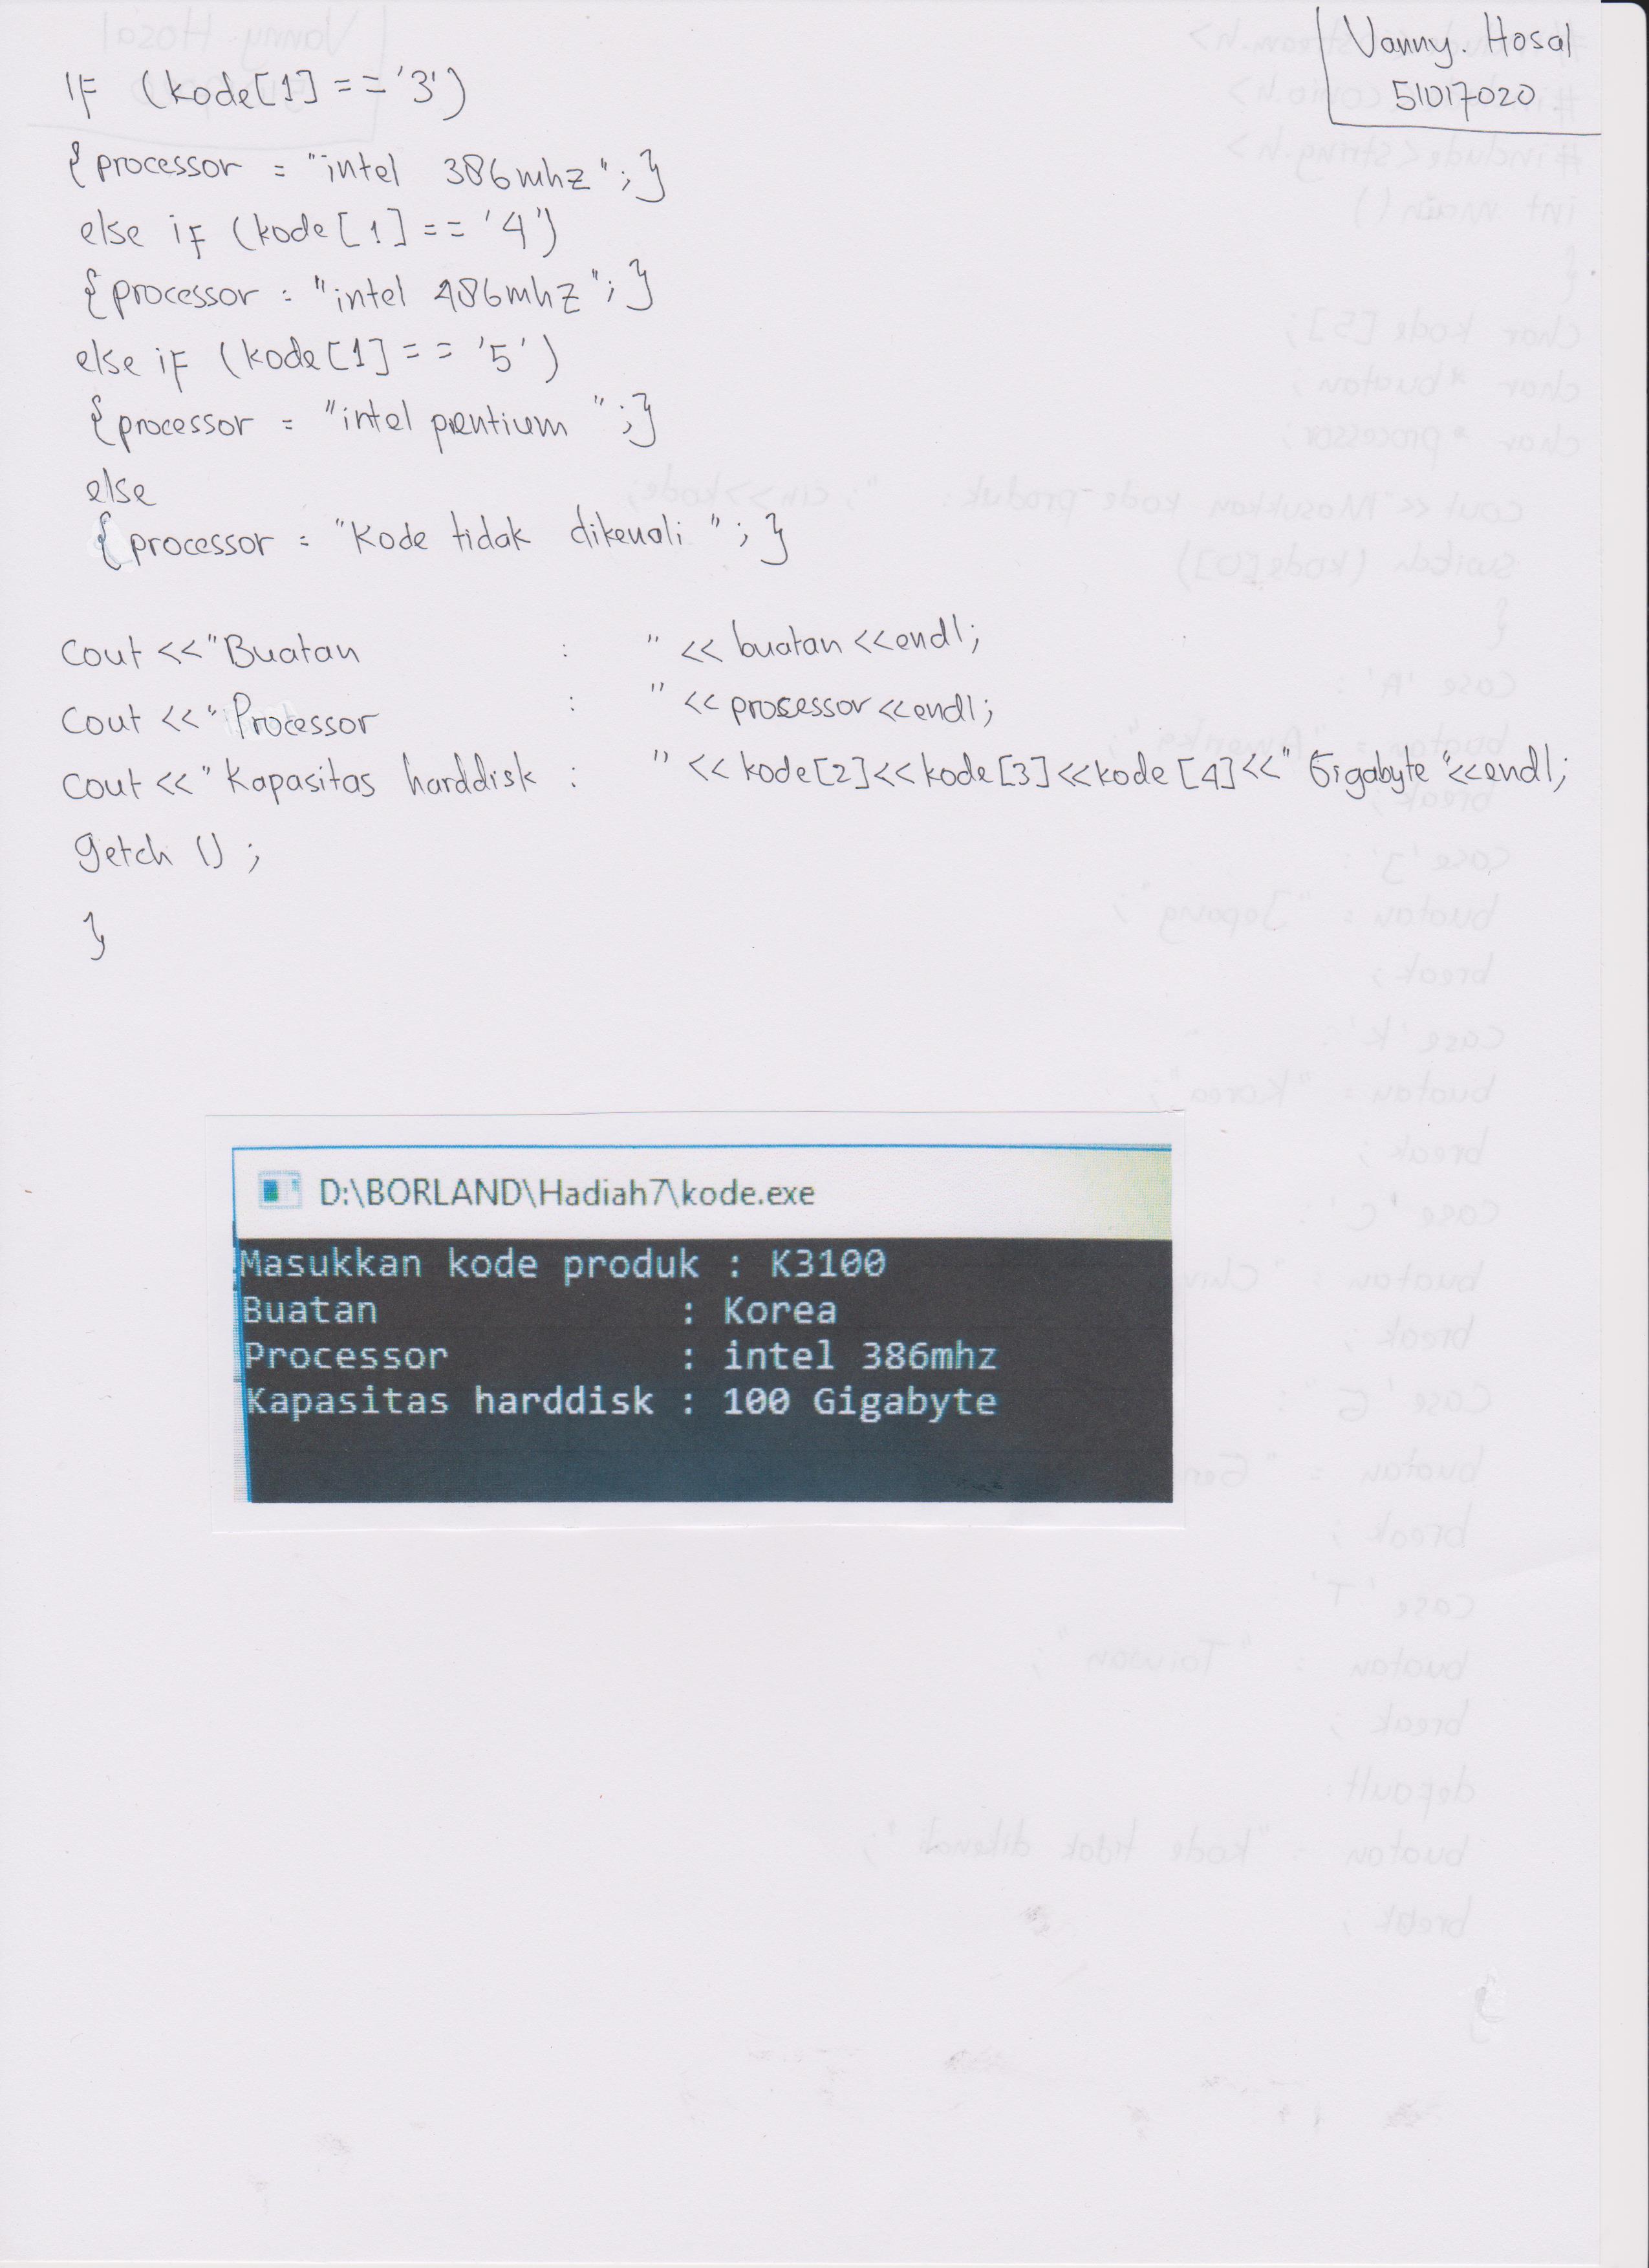 Vanny. Hosal
51017020
IF (kode[1] == '3')
{ processor = "intel 386mhz"; }
else if (kode[1] == '4')
{ processor = "intel 486mhz"; }
else if (kode[1] == '5')
{ processor = "intel pentium "; }
else
{ processor = "Kode tidak dikenali "; }
Cout <<"Buatan : " << buatan <<endl;
Cout <<"Processor : " << processor <<endl;
Cout <<"Kapasitas harddisk : " << kode[2]<<kode[3]<<kode[4]<<" Gigabyte "<<endl;
getch () ;
}
D:\BORLAND\Hadiah7\kode.exe
Masukkan kode produk : K3100
Buatan : Korea
Processor : intel 386mhz
Kapasitas harddisk : 100 Gigabyte